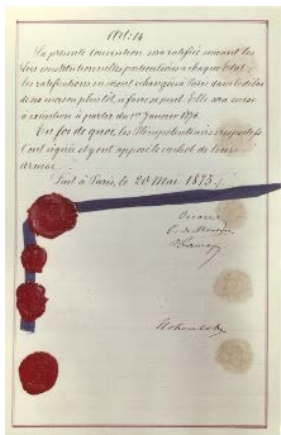 Art: 14
La présente convention sera ratifiée suivant les
lois constitutionnelles particulières à chaque Etat;
les ratifications en seront échangées à Paris dans le délai
de six mois ou plus tôt, si faire se peut. Elle sera mise
à exécution à partir du 1er Janvier 1876.
En foi de quoi, les Plénipotentiaires respectifs
l'ont signée et y ont apposé le cachet de leurs
armes.
Fait à Paris, le 20 Mai 1875.
Decazes